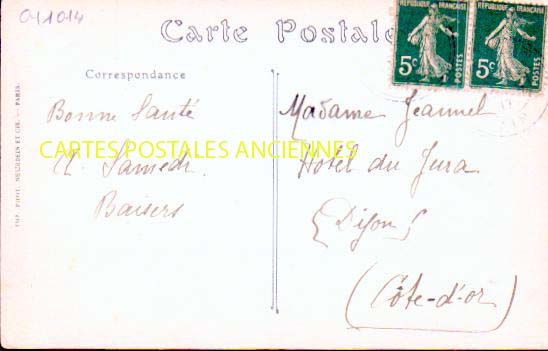 041014
Carte Postale
RÉPUBLIQUE FRANÇAISE
5c POSTES
RÉPUBLIQUE FRANÇAISE
5c POSTES
Correspondance
Bonne Santé
Samedi
Baisers
CARTES POSTALES ANCIENNES
Madame Jeannel
Hôtel du Jura
Dijon
(Côte-d'or)
IMP. PHOT. NEURDEIN ET CIE. — PARIS.